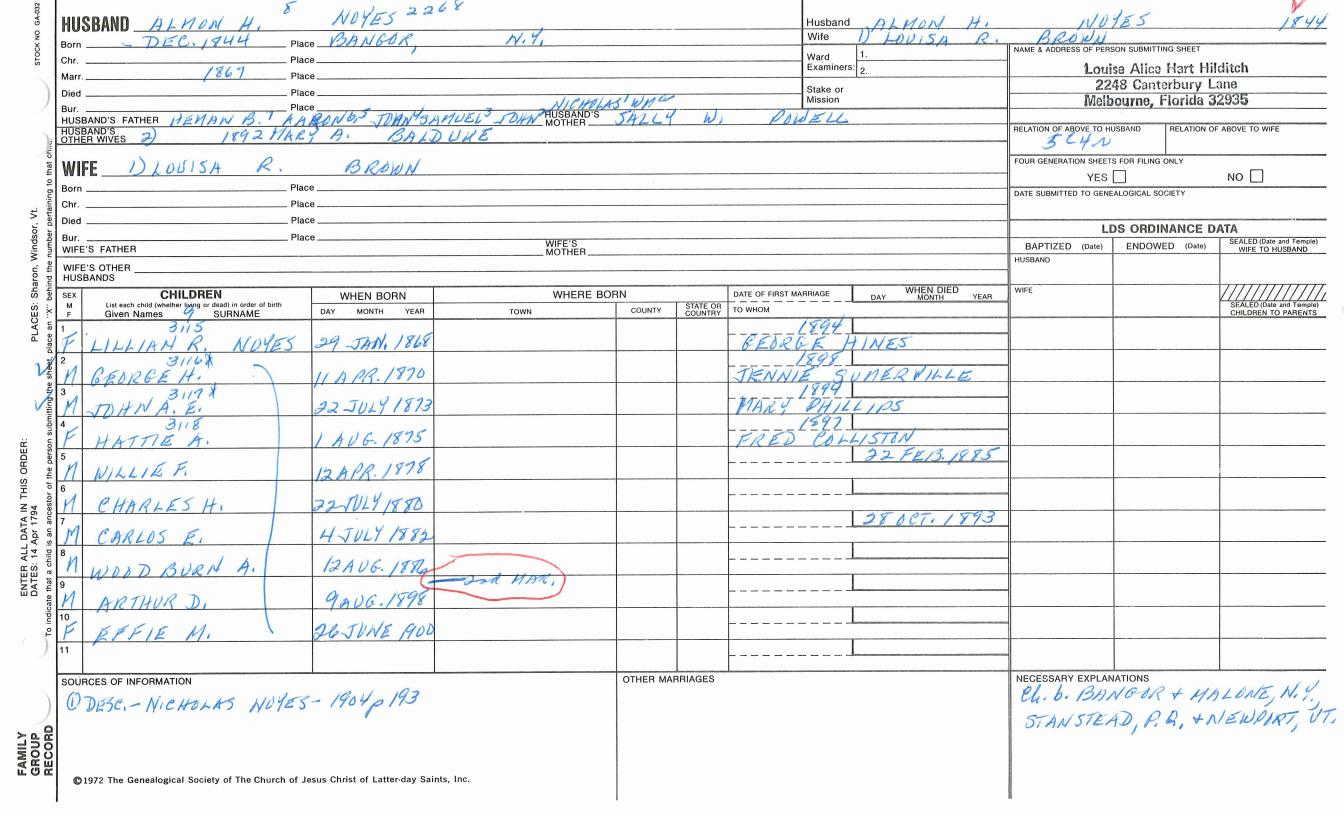 HUSBAND ALMON H. 8 NOYES 2268
Born - DEC. 1844 Place BANGOR, N.Y.
Chr. Place
Marr. 1867 Place
Died Place
Bur. Place
HUSBAND'S FATHER HEMAN B.7 AARON6,5 JOHN4 SAMUEL3 JOHN2 NICHOLAS1 WM HUSBAND'S MOTHER SALLY W. POWELL
HUSBAND'S OTHER WIVES 2) 1892 MARY A. BALDUKE
WIFE 1) LOUISA R. BROWN
Born Place
Chr. Place
Died Place
Bur. Place
WIFE'S FATHER WIFE'S MOTHER
WIFE'S OTHER HUSBANDS
Husband ALMON H. NOYES 1844
Wife 1) LOUISA R. BROWN
Ward Examiners: 1. 2.
Stake or Mission
NAME & ADDRESS OF PERSON SUBMITTING SHEET
Louise Alice Hart Hilditch
2248 Canterbury Lane
Melbourne, Florida 32935
RELATION OF ABOVE TO HUSBAND RELATION OF ABOVE TO WIFE
5C4R
FOUR GENERATION SHEETS FOR FILING ONLY
YES NO
DATE SUBMITTED TO GENEALOGICAL SOCIETY
LDS ORDINANCE DATA
BAPTIZED (Date) ENDOWED (Date) SEALED (Date and Temple) WIFE TO HUSBAND
HUSBAND
WIFE
SEALED (Date and Temple) CHILDREN TO PARENTS
SEX M F CHILDREN WHEN BORN WHERE BORN DATE OF FIRST MARRIAGE WHEN DIED
List each child (whether living or dead) in order of birth
Given Names 9 SURNAME DAY MONTH YEAR TOWN COUNTY STATE OR COUNTRY TO WHOM DAY MONTH YEAR
1 3115 1894
F LILLIAN R. NOYES 29 JAN. 1868 GEORGE HINES
2 3116 X 1898
M GEORGE H. 11 APR. 1870 JENNIE SUMERVILLE
3 3117 X 1894
M JOHN A. E. 22 JULY 1873 MARY PHILLIPS
4 3118 1897
F HATTIE A. 1 AUG. 1875 FRED COLLISTON
5 22 FEB. 1885
M WILLIE F. 12 APR. 1878
6
M CHARLES H. 22 JULY 1880
7 28 OCT. 1893
M CARLOS E. 4 JULY 1882
8
M WOODBURN A. 12 AUG. 1886
2nd MAR.
9
M ARTHUR D. 9 AUG. 1898
10
F EFFIE M. 26 JUNE 1900
11
SOURCES OF INFORMATION
① DESC. - NICHOLAS NOYES - 1904 p 193
OTHER MARRIAGES
NECESSARY EXPLANATIONS
Ch. b. BANGOR + MALONE, N.Y.
STANSTEAD, P.Q, + NEWPORT, VT.
©1972 The Genealogical Society of The Church of Jesus Christ of Latter-day Saints, Inc.
STOCK NO. GA-032
PLACES: Sharon, Windsor, Vt.
ENTER ALL DATA IN THIS ORDER:
DATES: 14 Apr 1794
To indicate that a child is an ancestor of the person submitting the sheet, place an "X" behind the number pertaining to that child.
FAMILY
GROUP
RECORD